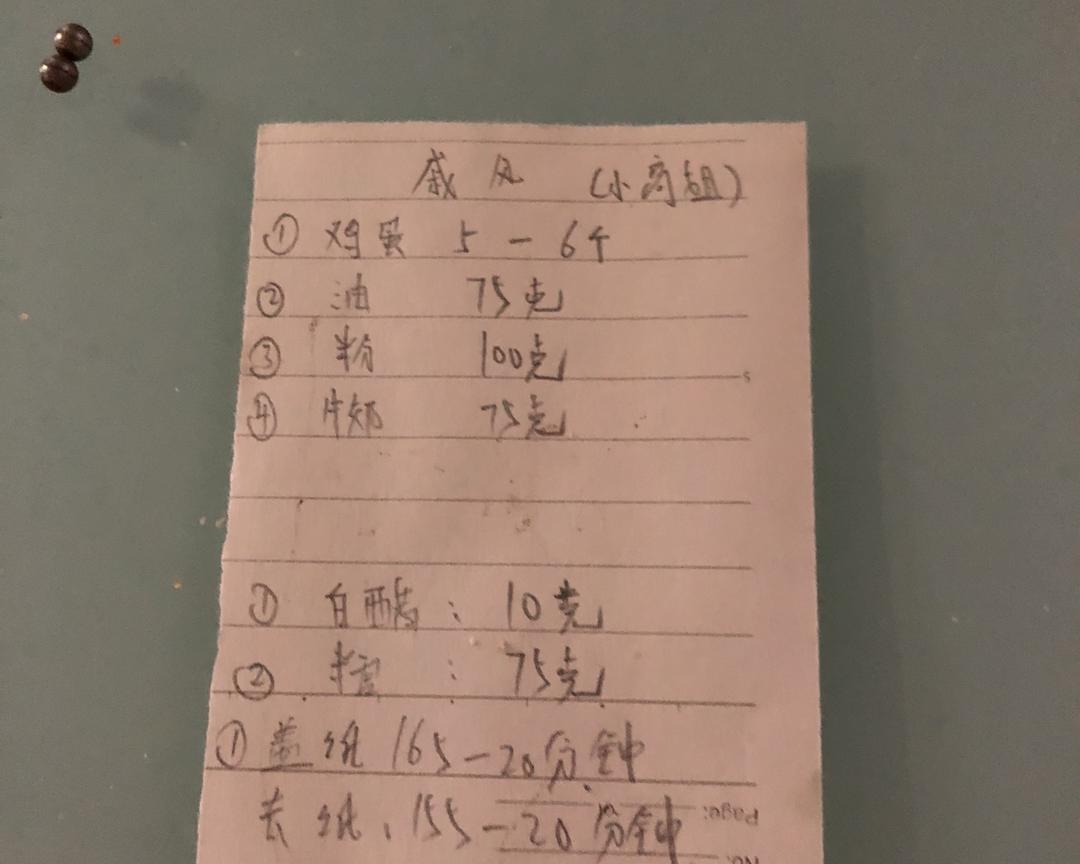 戚风 (小高姐)
① 鸡蛋 5-6个
② 油 75克
③ 粉 100克
④ 牛奶 75克
① 白醋: 10克
② 糖: 75克
① 盖纸 165-20分钟
去纸、155-20分钟
Page:
No: